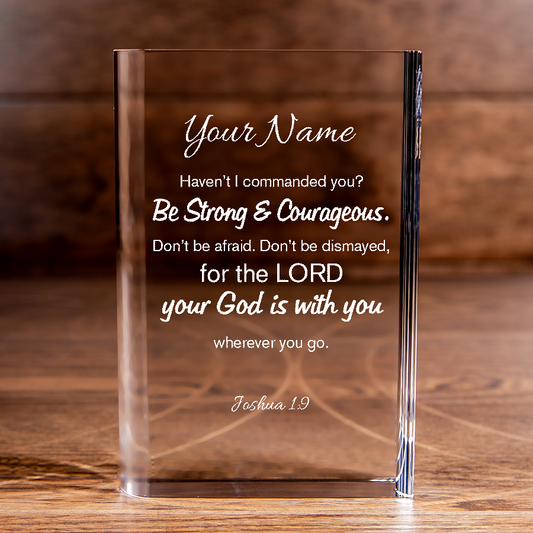 Your Name
Haven't I commanded you?
Be Strong & Courageous.
Don't be afraid. Don't be dismayed,
for the LORD
your God is with you
wherever you go.
Joshua 1:9